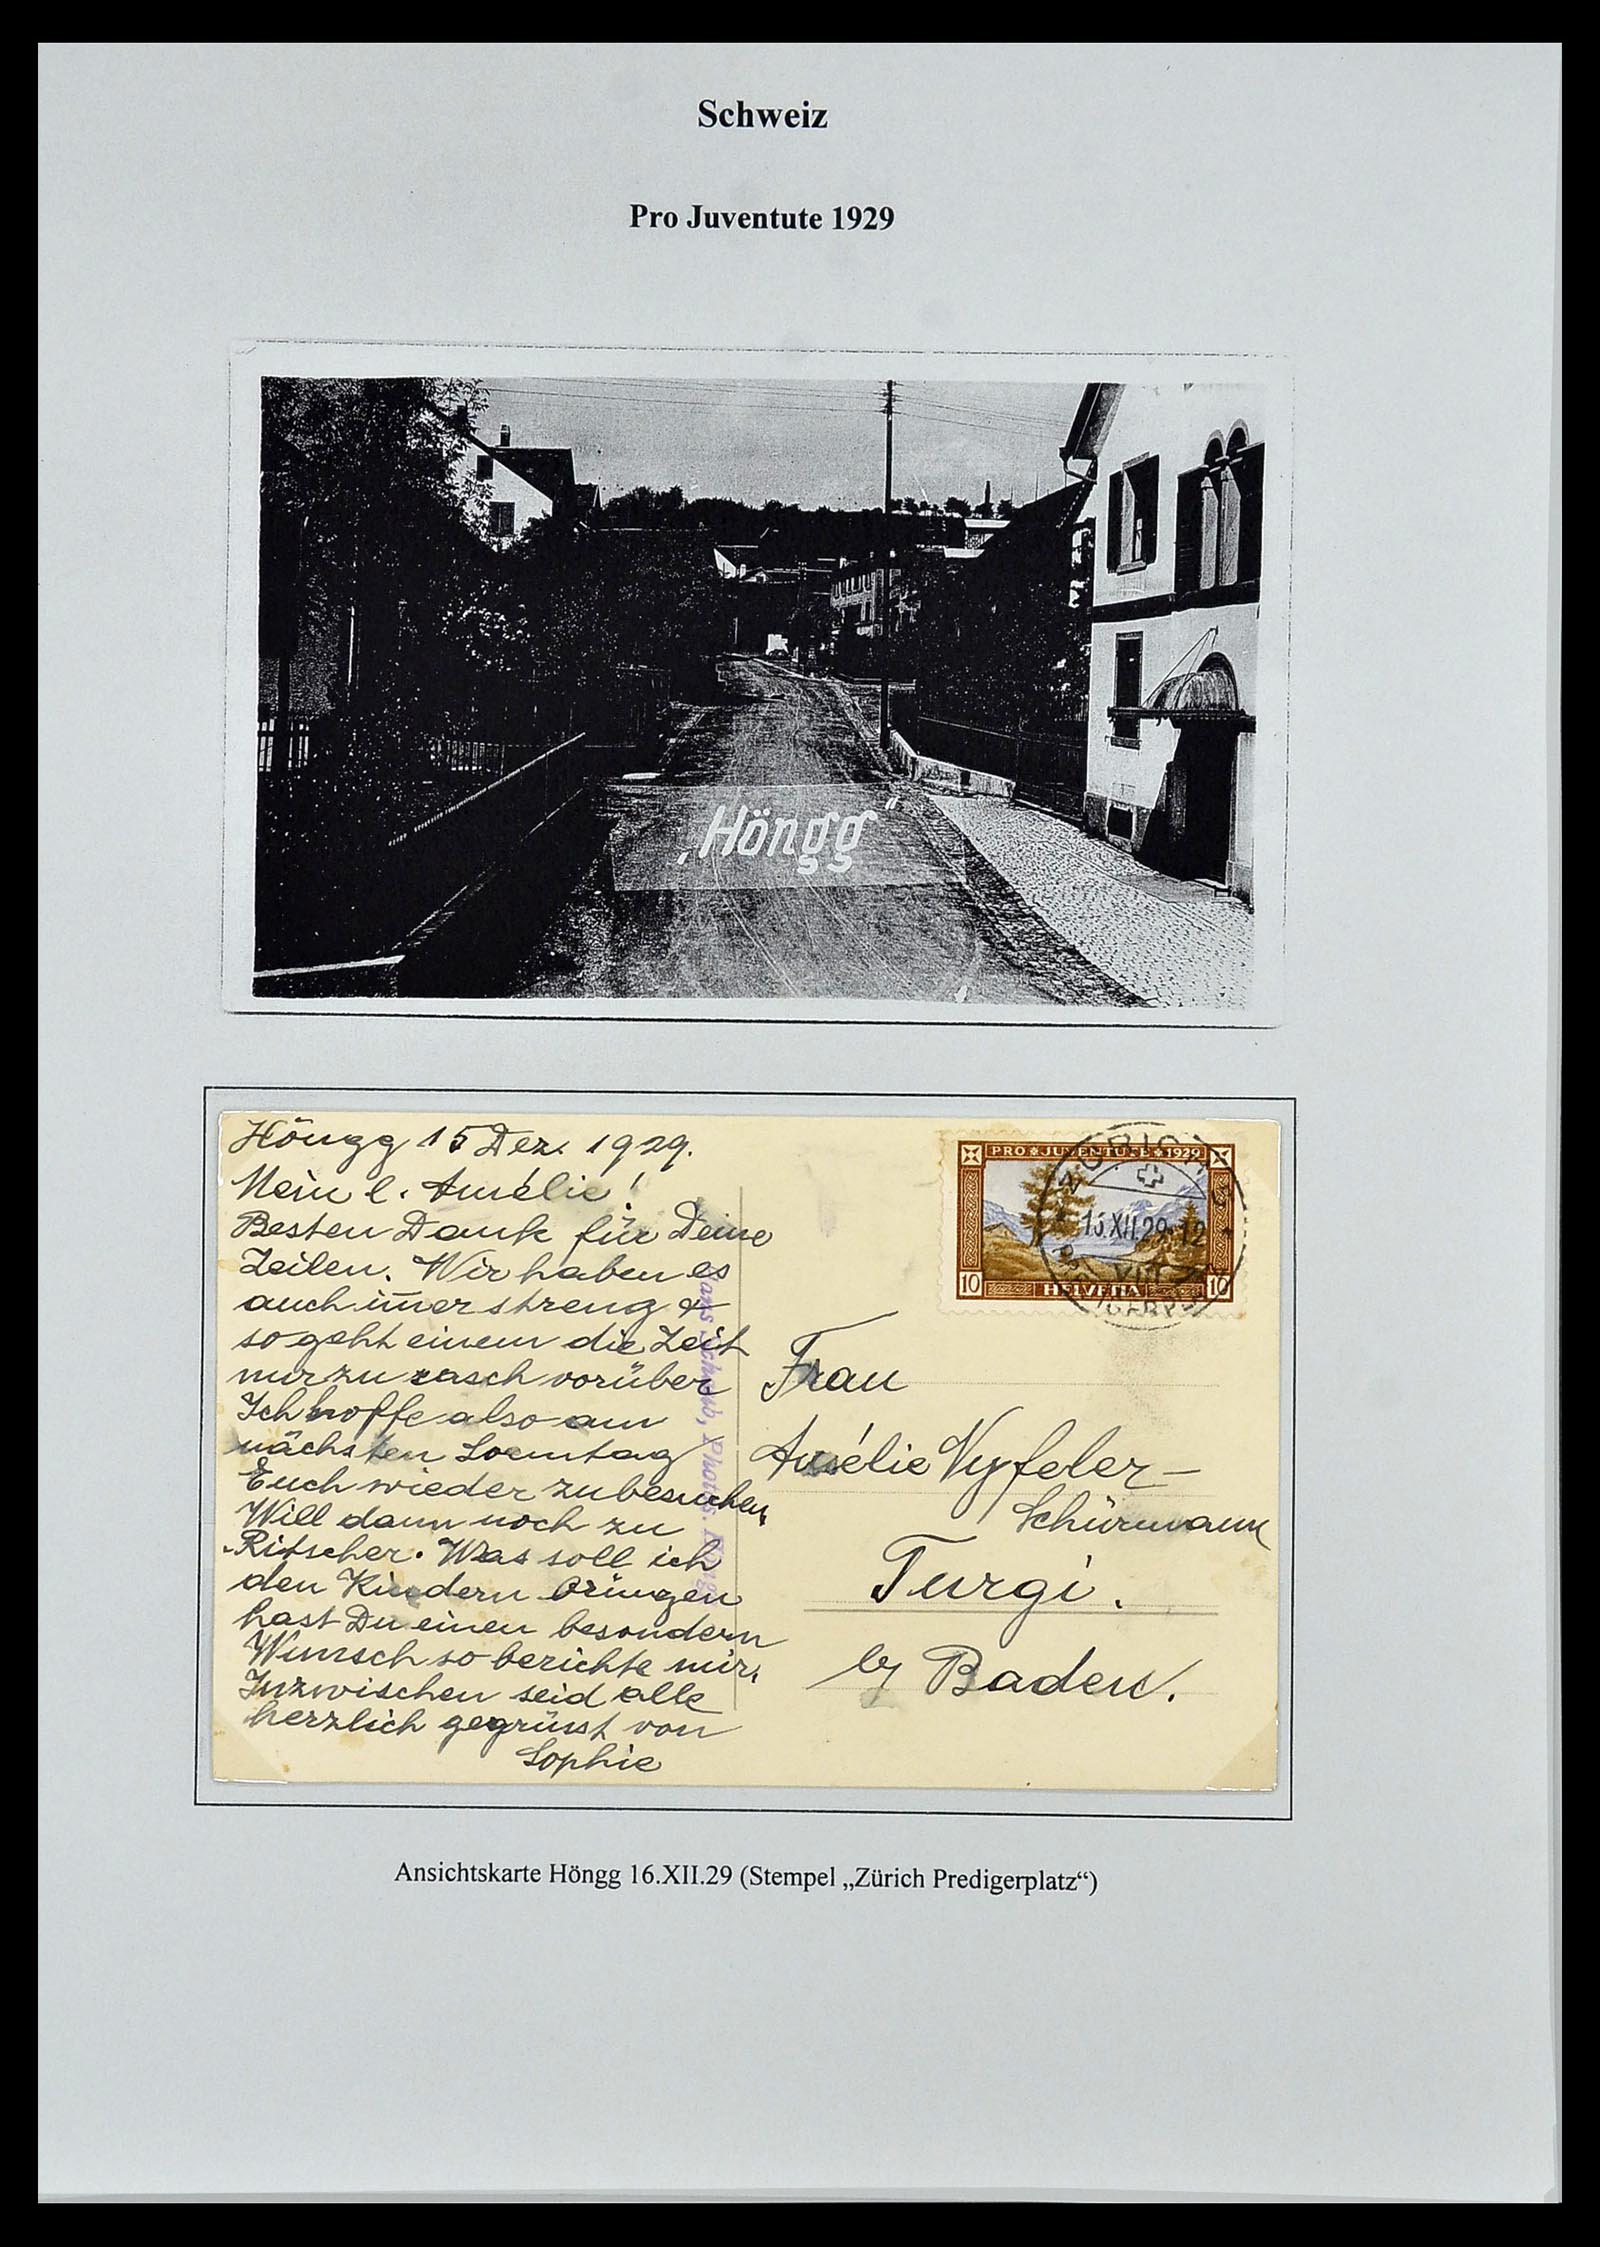 Schweiz
Pro Juventute 1929
„Höngg“
Höngg 15 Dez. 1929.
Mein l. Amélie!
Besten Dank für Deine
Zeilen. Wir haben es
auch im̅er streng &
so geht einem die Zeit
nur zu rasch vorüber
Ich hoffe also am
nächsten Sonntag
Euch wieder zu besuchen,
Will dann noch zu
Ritscher. Was soll ich
den Kindern bringen
hast Du einen besondern
Wunsch so berichte mir,
Inzwischen seid alle
herzlich gegrüsst von
Sophie
Hans Schwab, Photos.
PRO JUVENTUTE 1929
10 HELVETIA 10
ZÜRICH
XII.29-12
PREDIGERPLATZ
Frau
Amélie Wyfeler-
Schürmann
Turgi.
b/ Baden.
Ansichtskarte Höngg 16.XII.29 (Stempel „Zürich Predigerplatz“)